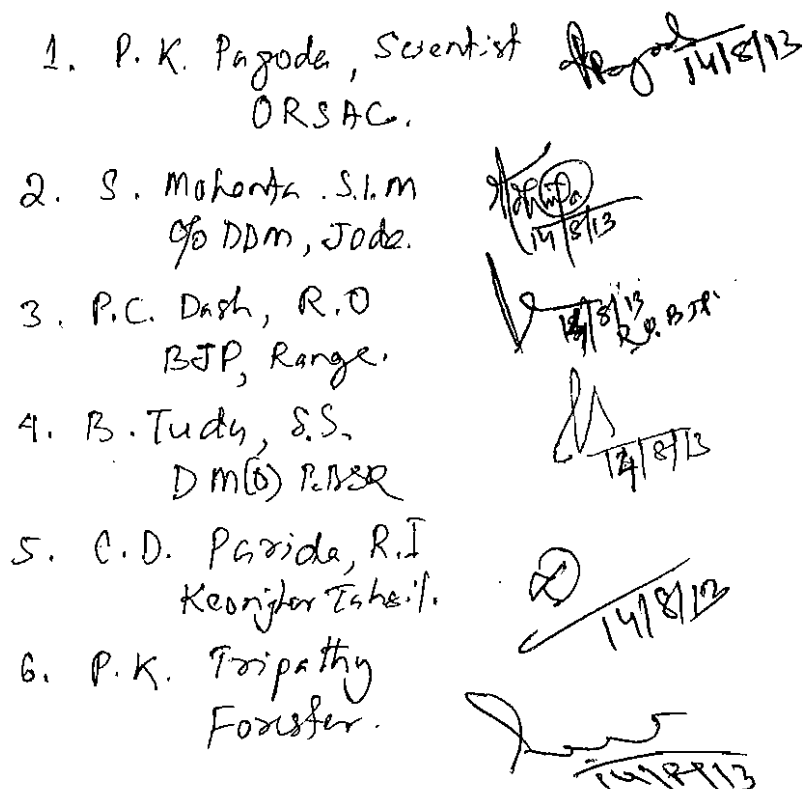 1. P. K. Pagoda, Scientist 14/8/13
ORSAC.
2. S. Mohanta. S.I.M
c/o DDM, Joda. 14/8/13
3. P.C. Dash, R.O 14/8/13
BJP, Range. R.O. BJP.
4. B. Tudu, S.S.
DM(O) 14/8/13
5. C.D. Parida, R.I
Keonjhar Tahsil. 14/8/13
6. P.K. Tripathy
Forester.
14/8/13